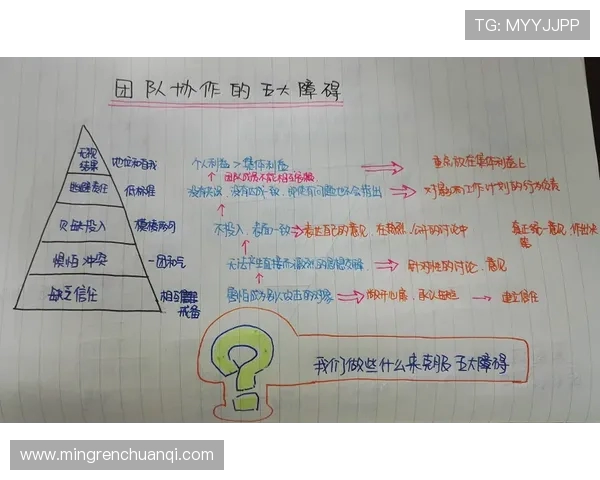 TG: MYYJJPP
团队协作的五大障碍
无视结果 地位和自我 个人利益 > 集体利益 → 重点放在集体利益上
团队成员不能相互
逃避责任 低标准 没有共识，没有达成一致，即使有问题也不会指出 → 对影响工作计划的行为负责
欠缺投入 模棱两可 不投入，表面一致 → 表达自己的意见，在热烈、公开的讨论中 真正统一意见，作出决策
惧怕冲突 一团和气 无法产生直接而激烈的思想交锋 → 针对性的讨论、意见
缺乏信任 相互戒备 害怕成为别人攻击的对象 → 敞开心扉，承认缺陷 → 建立信任
? 我们做些什么来克服五大障碍
www.mingrenchuanqi.com